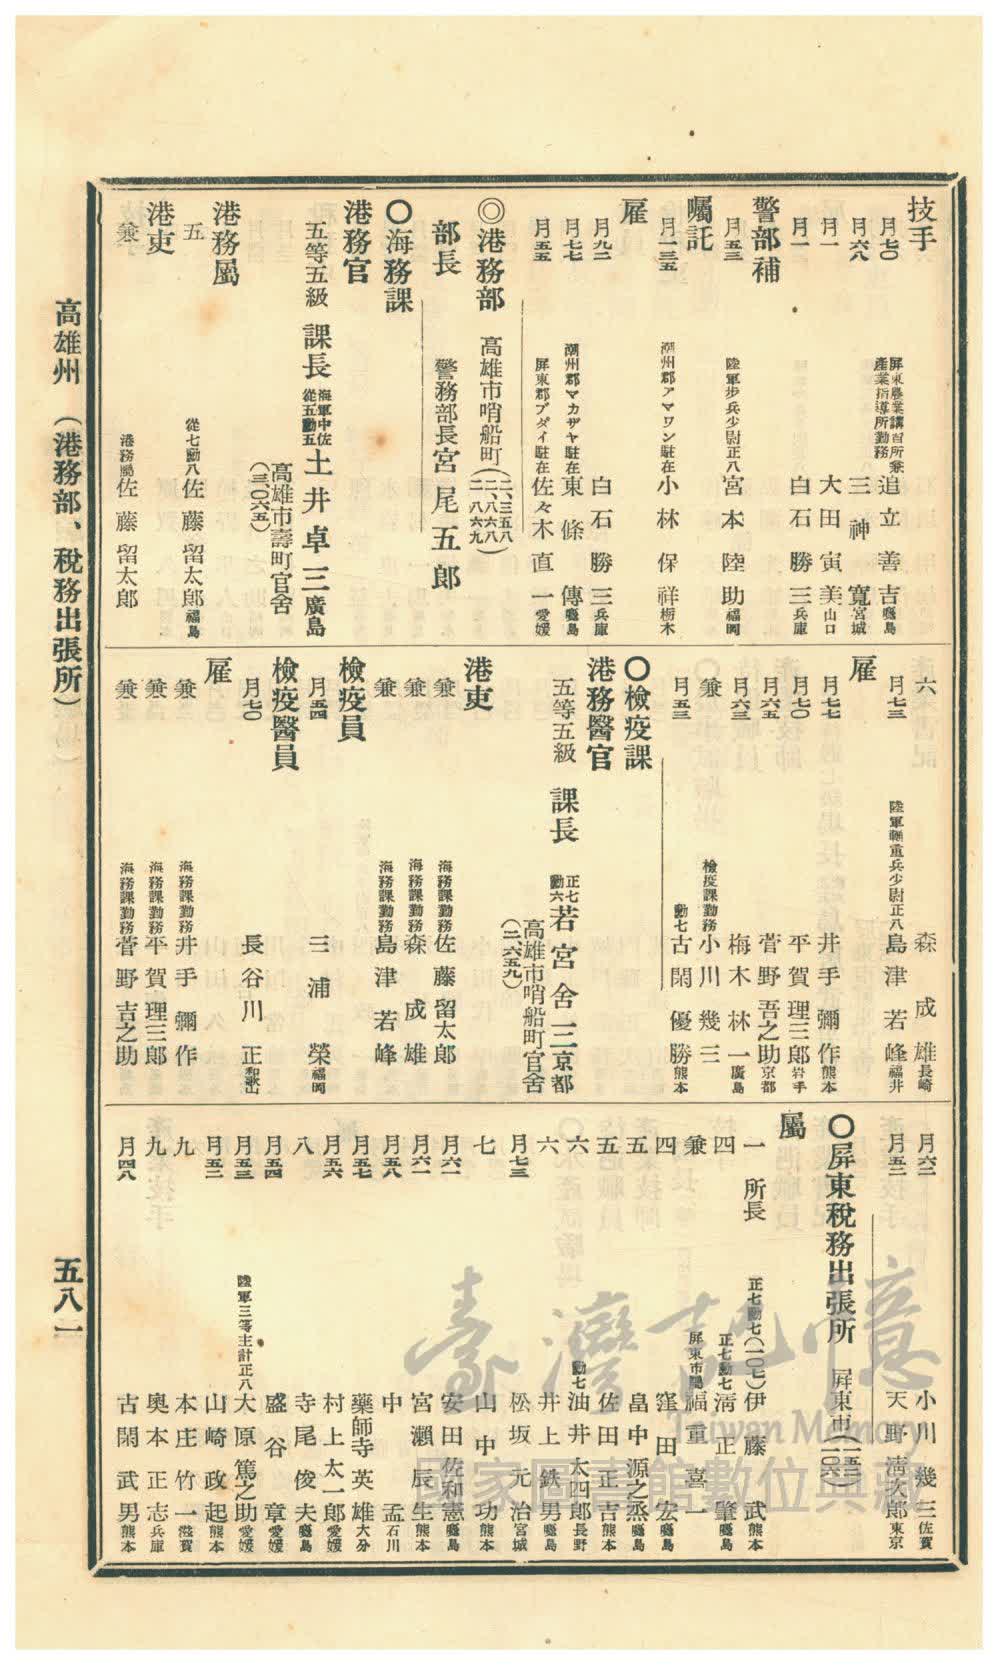 技手
月七〇 屏東農業講習所兼產業指導所勤務 追立善吉 鹿兒島
月六八 三神寬 宮城
月一 大田寅美 山口
月一 白石勝三 兵庫
警部補
月五三 陸軍步兵少尉正八 宮本陸助 福岡
囑託
月一三五 潮州郡アマワン駐在 小林保祥 栃木
雇
月九二 白石勝三 兵庫
月七七 潮州郡マカザヤ駐在 東條傳 鹿兒島
月五五 屏東郡ブダイ駐在 佐々木直一 愛媛
◎港務部 高雄市哨船町(二、三五八 二、八六八 二、八六九)
部長 警務部長 宮尾五郎
〇海務課
港務官
五等五級 課長 海軍中佐從五勳五 土井卓三 廣島
高雄市壽町官舍(三〇六五)
港務屬
五 從七勳八 佐藤留太郎 福島
港吏
兼 港務屬 佐藤留太郎
六 森成雄 長崎
月七三 陸軍輜重兵少尉正八 島津若峰 福井
雇
月七七 井手彌作 熊本
月七〇 平賀理三郎 岩手
月六五 菅野吾之助 京都
月六三 梅木林一 廣島
兼 檢疫課勤務 小川幾三
月五三 勳七 古閑優勝 熊本
〇檢疫課
港務醫官
五等五級 課長 正七勳六 若宮舍三 京都
高雄市哨船町官舍(二、六五九)
港吏
兼 海務課勤務 佐藤留太郎
兼 海務課勤務 森成雄
兼 海務課勤務 島津若峰
檢疫員
月五四 三浦榮 福岡
檢疫醫員
月七〇 長谷川正 和歌山
雇
兼 海務課勤務 井手彌作
兼 海務課勤務 平賀理三郎
兼 海務課勤務 菅野吉之助
月六二 小川幾三 佐賀
月五二 天野淸次郎 東京
〇屏東稅務出張所 屏東市
屬
一 所長 正七勳七(一〇七) 伊藤武 熊本
四 正七勳七 淸正肇 鹿兒島
兼 屏東市屬 福重喜一
四 窪田宏 鹿兒島
五 畠中源之烝 鹿兒島
五 佐田正吉 熊本
六 勳七 油井太四郎 長野
六 井上鉄男 鹿兒島
月七三 松坂元治 宮城
七 山中功 熊本
月六二 安田佐和憲 鹿兒島
月六二 宮瀨辰生 熊本
月五八 中孟 石川
月五七 藥師寺英雄 大分
月五六 村上太一郎 愛媛
八 寺尾俊夫 鹿兒島
月五四 盛谷章 愛媛
月五三 陸軍三等主計正八 大原篤之助 愛媛
月五二 山崎政起 熊本
九 本庄竹一 滋賀
九 奧本正志 兵庫
月四八 古閑武男 熊本
高雄州 (港務部、稅務出張所)
五八一
臺灣記憶
Taiwan Memory
國家圖書館數位典藏